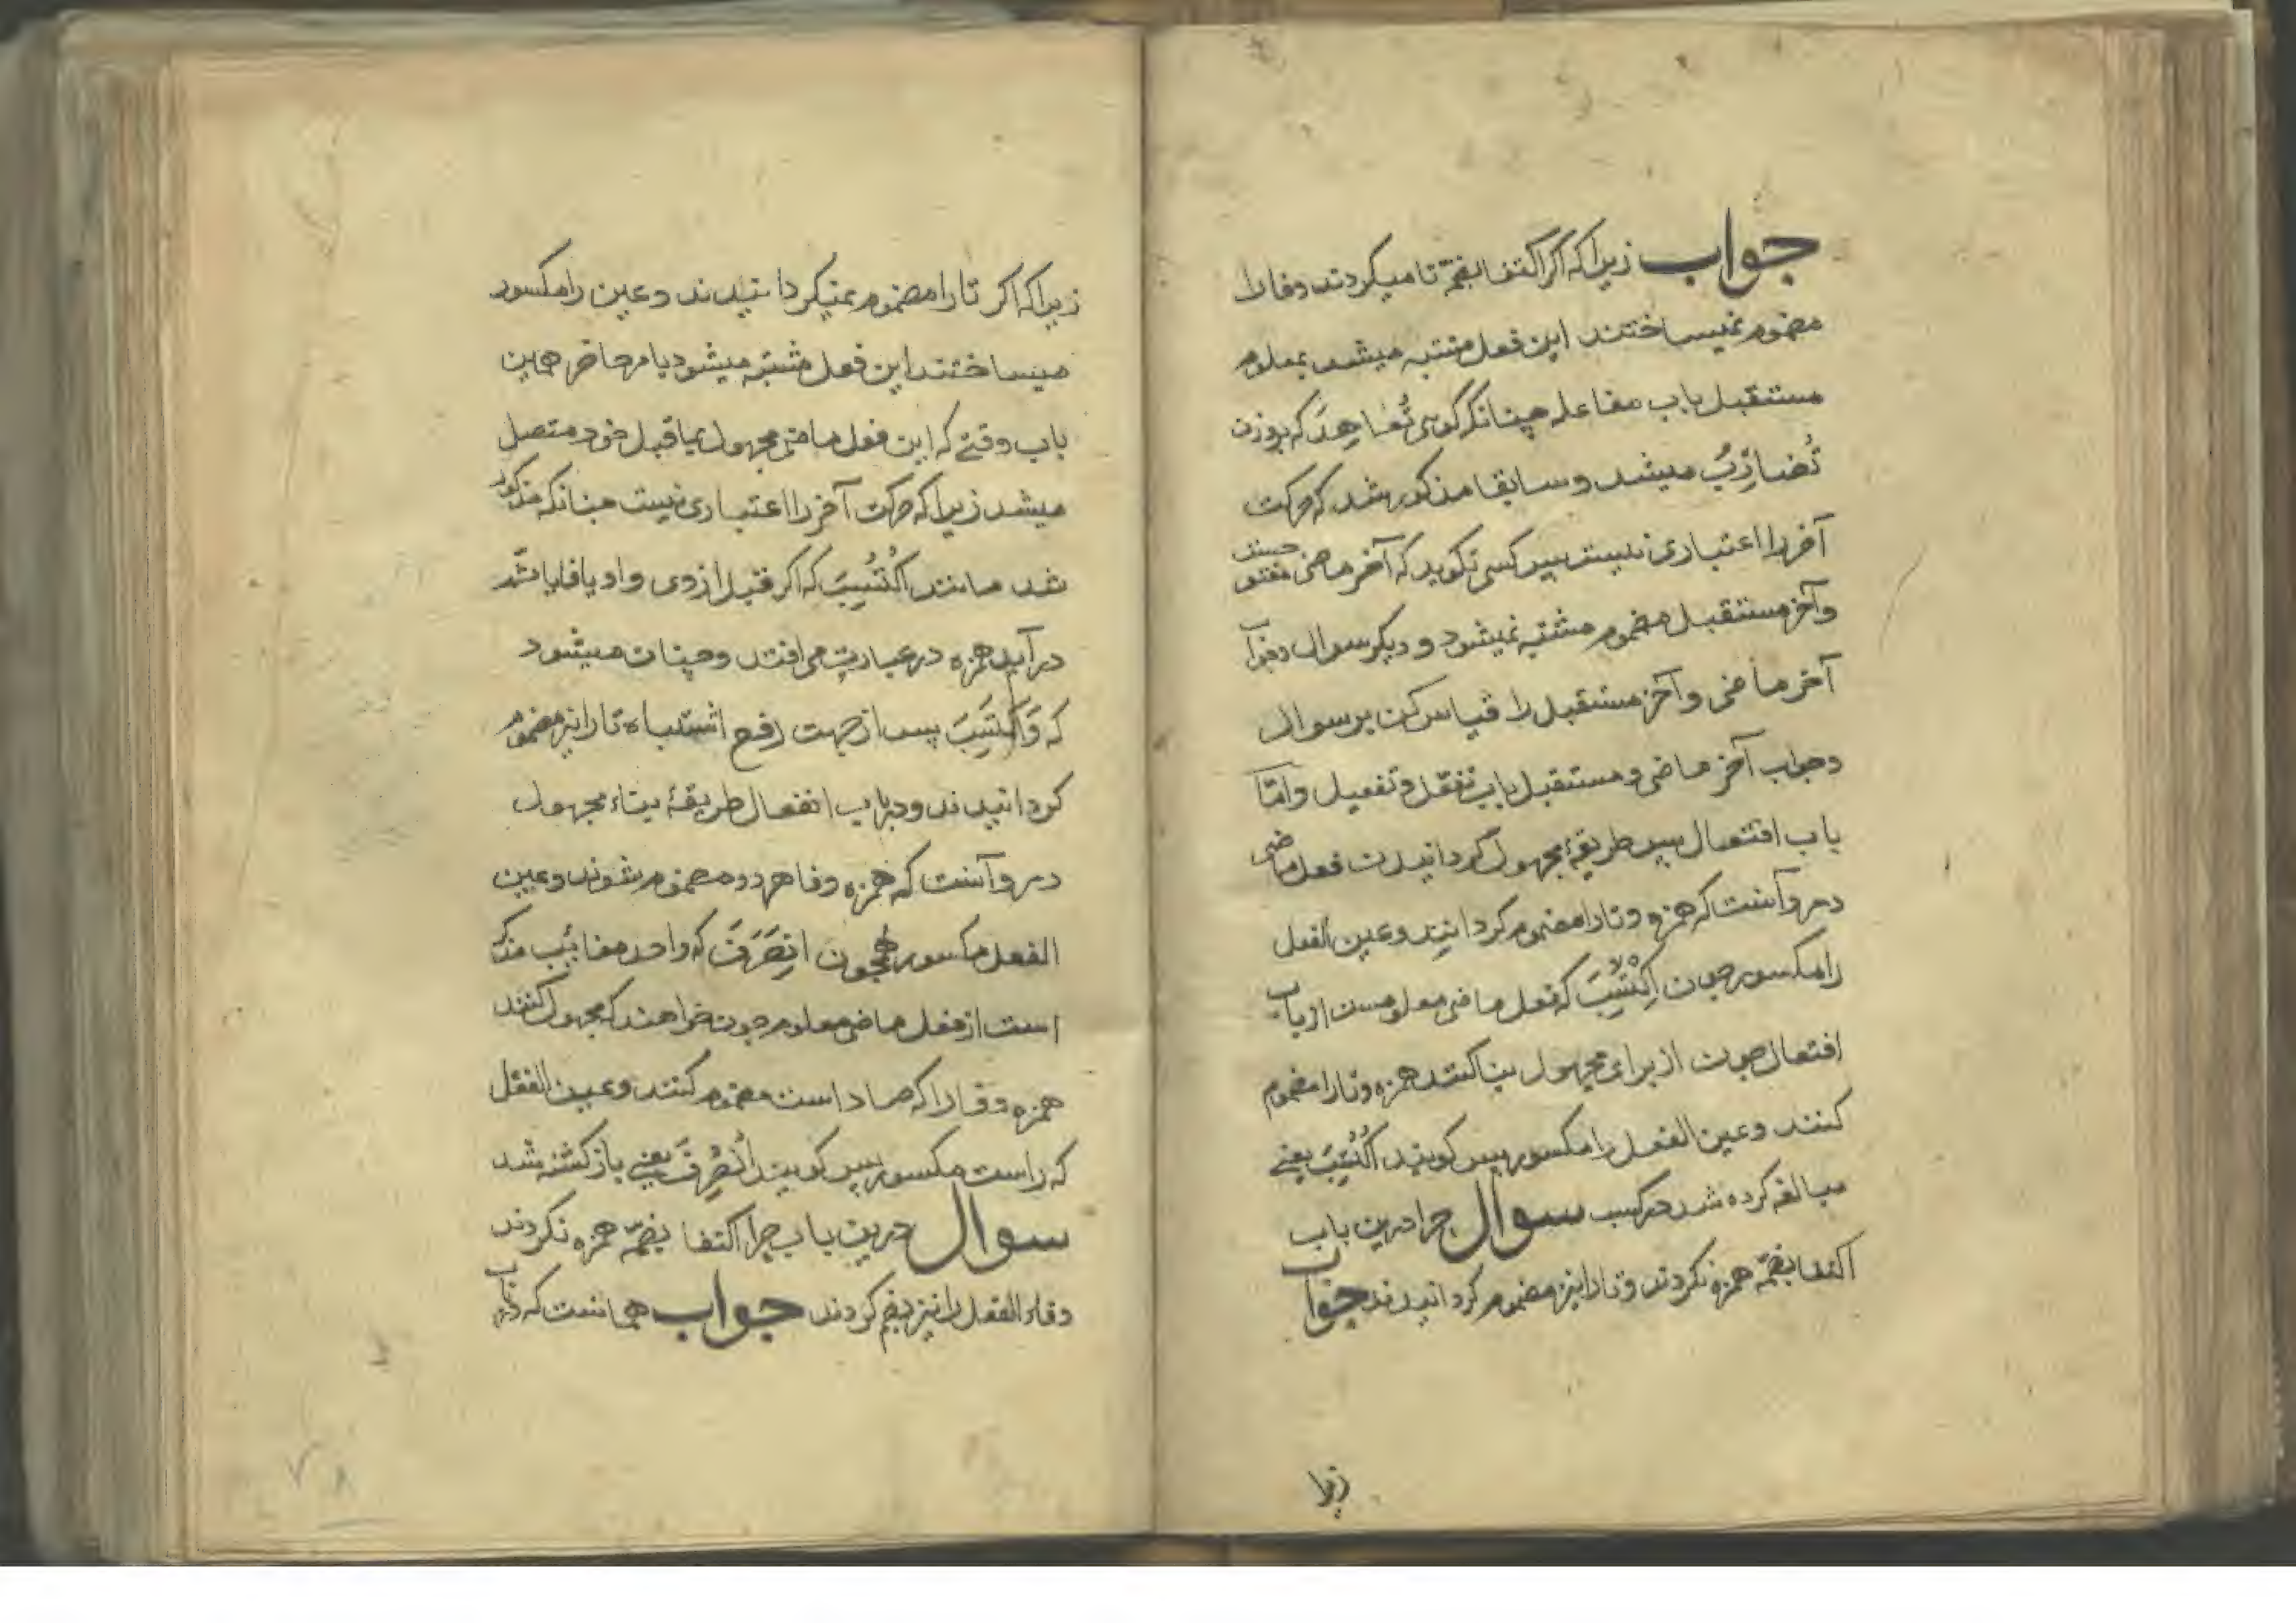 جواب زیرا که اکر اکتفا بضمّ تا میکردند و فا را
مضموم نمیساختند این فعل مشتبه میشد بمعلوم
مستقبل باب مفاعله چنانکه کوی تُعَاهِدُ که بوزن
تُضَارِبُ میشد و سابقا مذکور شد که حرکت
آخر را اعتباری نیست پس کسی نکوید که آخر ماضی مفتو حست
و آخر مستقبل مضموم مشتبه نمیشود و دیکر سوال وجواب
آخر ماضی و آخر مستقبل را قیاس کن بر سوال
وجواب آخر ماضی و مستقبل باب تفعّل و تفعیل و امّا
باب افتعال پس طریقهٔ مجهول کردانیدن فعل ماضی
درو آنست که همزه و تا را مضموم کردانند و عین الفعل
را مکسور چون اِکْتَسَبَ که فعل ماضی معلومست از باب
افتعال چون از برای مجهول بنا کنند همزه و تا را مضموم
کنند و عین الفعل را مکسور پس کویند اُکْتُسِبَ یعنے
مبالغه کرده شد در کسب سوال چرا درین باب
اکتفا بضمّ همزه نکردند و تا را نیز مضموم کردانیدند جواب
زیرا
زیرا که اکر تا را مضموم نمیکردانیدند و عین را مکسور
میساختند این فعل مشتبه میشود بامر حاضر همین
باب وقتے که این فعل ماضی مجهول بماقبل خود متصل
میشد زیرا که حرکت آخر را اعتباری نیست چنانکه مذکور
شد مانند اُکْتُسِبَ که اکر قبل از وی واو یا فا یا ثمّ
در آید همزه در عبارت می افتد و چنان میشود
که وَاکْتَسِبَ پس از جهت رفع اشتباه تا را نیز مضموم
کردانیدند و در باب انفعال طریقهٔ بناء مجهول
درو آنست که همزه و فا هر دو مضموم شوند و عین
الفعل مکسور همچون اِنصَرَفَ که واحد مغایب مذکر
است از فعل ماضی معلوم چون خواهند که مجهول کنند
همزه و فا را که صاد است مضموم کنند و عین الفعل
که راست مکسور پس کویند اُنصُرِفَ یعنے باز کشته شد
سوال درین باب چرا اکتفا بضمّ همزه نکردند
و فاء الفعل را نیز بضم کردند جواب همانست که در باب